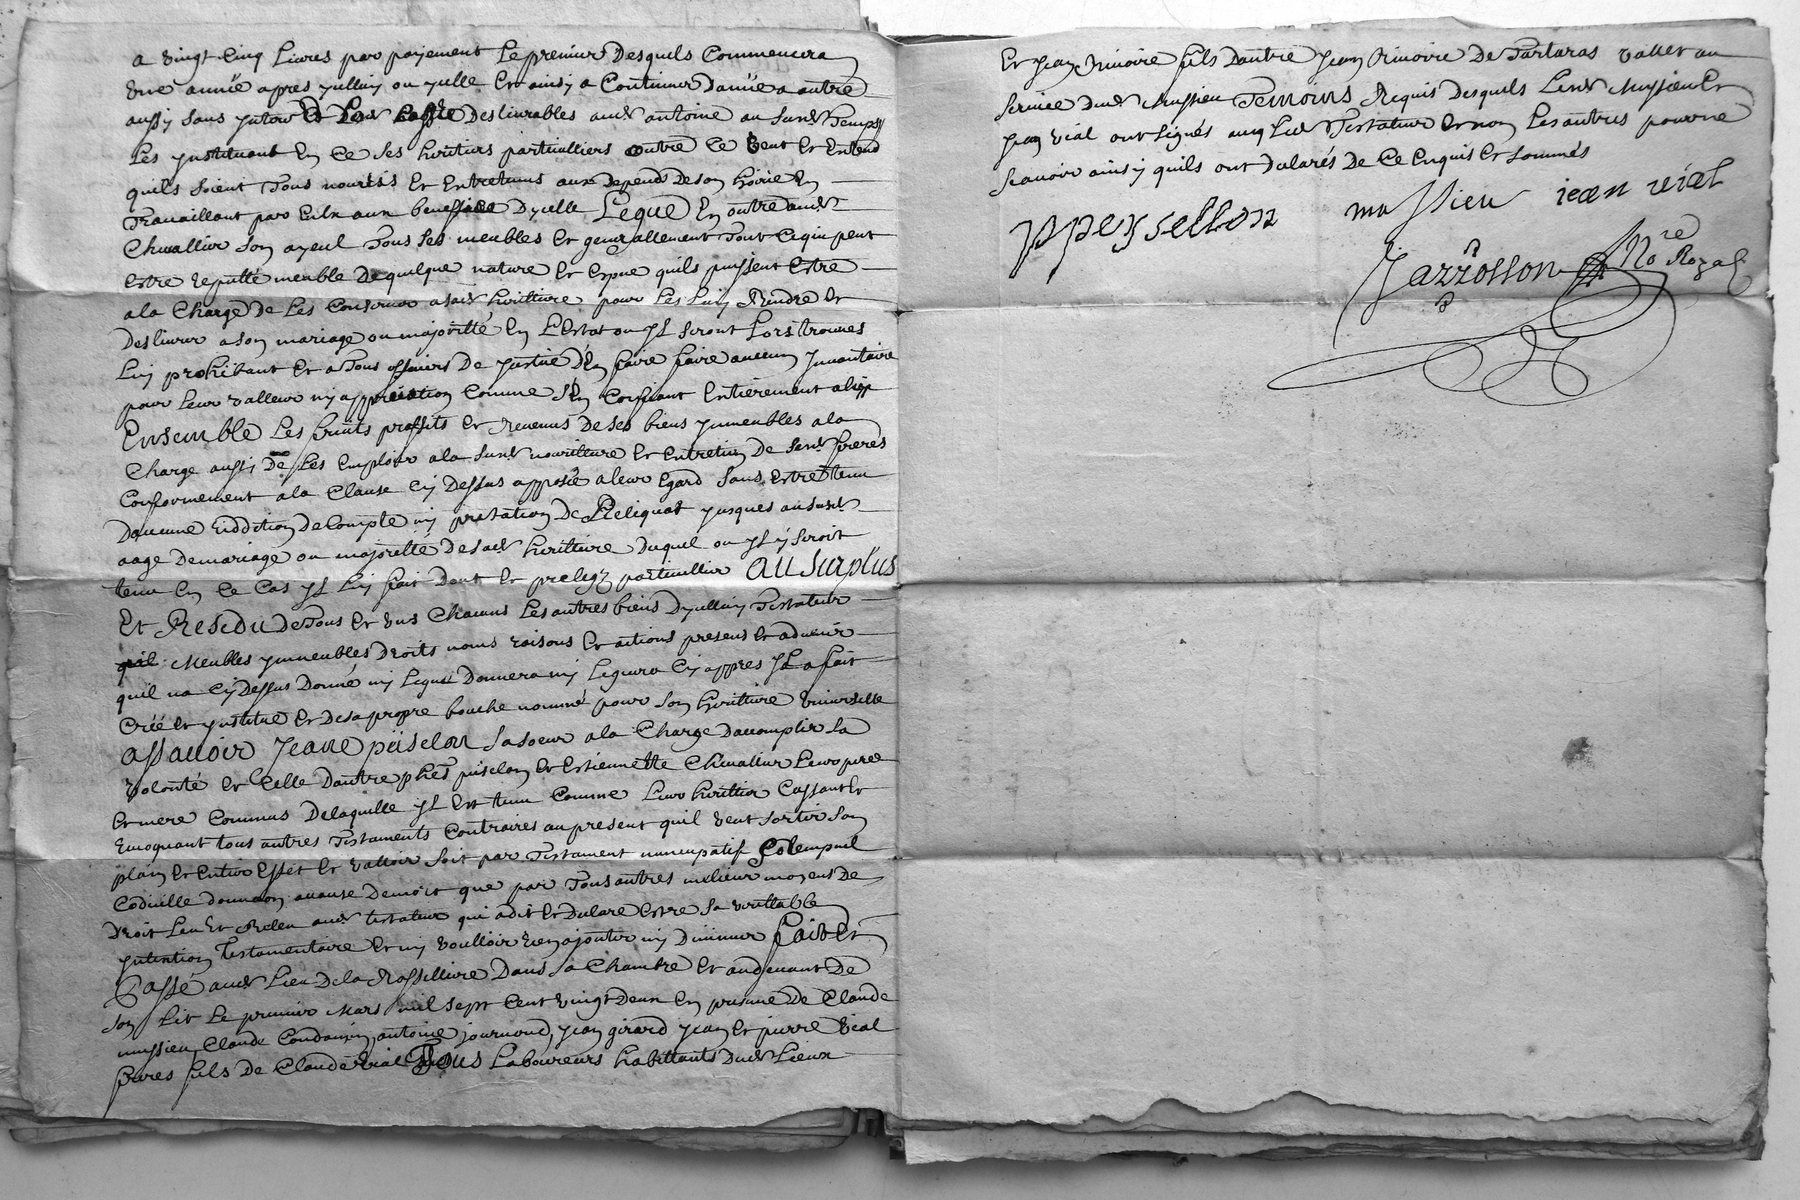 a vingt Cinq Livres par payement Le premier Desquels Commencera
Une année apres yulluy ou yulle Et ainsy a Continuer Dannée a autre
aussy sans ynterest Et Les Deslivrables aud antoine au susd Temps
Les ynstituant En Ce ses heritiers particulliers outre Ce Veut Et Entend
quils soient Tous nourris Et Entretenus aux Depends De son hoirie En
Travaillant par Eulx aux beneffice Dycelle Legue En outre aud
Chevallier son ayeul Tous ses meubles Et generallement Tout Ce qui peut
Estre reputté meuble De quelque nature Et Espece quils puyssent Estre
a la Charge De Les Conserver a sad heritiere pour Les Luy Rendre Et
Deslivrer a son mariage ou majoritté En L'Estat ou yL seront Lors trouvés
Luy prohibant Et a Tous officiers De justice D'En faire faire aucun ynvantaire
pour Leur valleur ny appreciation Comme s'En Confiant Entierement a luy
Ensemble Les fruits proffits Et Revenus De ses biens ymmeubles a la
Charge aussy De Les Employer a la susd nourriture Et Entretien De sesd freres
Conformement a la Clause Cy Dessus apposée a leur Egard sans Estre tenu
Daucune reddition De Compte ny prestation De Reliquat jusques au susd
aage De mariage ou majoritté De sad heritiere Duquel ou yL y seroit
tenu En Ce Cas yL Luy fait Dont Et prelegz particullier au surplus
Et Residu De Tous Et Uns Chacuns Les autres biens Dycelluy Testateur
Meubles ymmeubles Droits noms raisons Et actions presens Et advenir
quil na Cy Dessus Donné ny Legué Donnera ny Leguera Cy appres yL a fait
Créé Et ynstitué Et De sa propre bouche nommé pour son heritiere Universelle
assavoir Jeane peiselon sa soeur a la Charge Daccomplir sa
volonté Et Celle Dautre phet peiselon Et Estiennette Chevallier Leurs pere
Et mere Communs De laquelle yL Est tenu Comme Leur heritier Cassant Et
revoquant tous autres Testaments Contraires au present quil veut sortir son
plain Et Entier Effet Et valloir soit par Testament nuncupatif Solempnel
Codicille donnaon a cause De mort que par Tous autres milieur moyens De
Droit Leu Et Releu aud testateur qui a dit Et Declare Estre sa veritable
yntention Testamentaire Et ny voulloir rien ajouter ny Diminuer fait Et
Passé aud Lieu De la Rossilliere Dans sa Chambre Et audevant De
son Lit Le premier Mars mil sept Cent vingt Deux En presence De Claude
mussieu Claude Condamin, antoine journoud, jean girard jean Et pierre vial
freres fils De Claude vial Tous Laboureurs habittants Dud Lieux
Et jean Rivoire fils Dautre jean Rivoire De Tartaras vallet au
service Dud Mussieu Temoins Requis Desquels Lesd Mussieu Et
jean vial ont signés avec Led Testateur Et non Les autres pour ne
scavoir ainsy quils ont Declarés De Ce Enquis Et sommés
p peysellon massieu iean vial
Jazzosson No re Royal